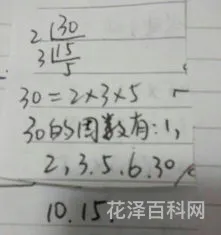 2 30
3 15
5
30=2×3×5
30的因数有:1,
2,3.5.6.30
10.15.
花泽百科网